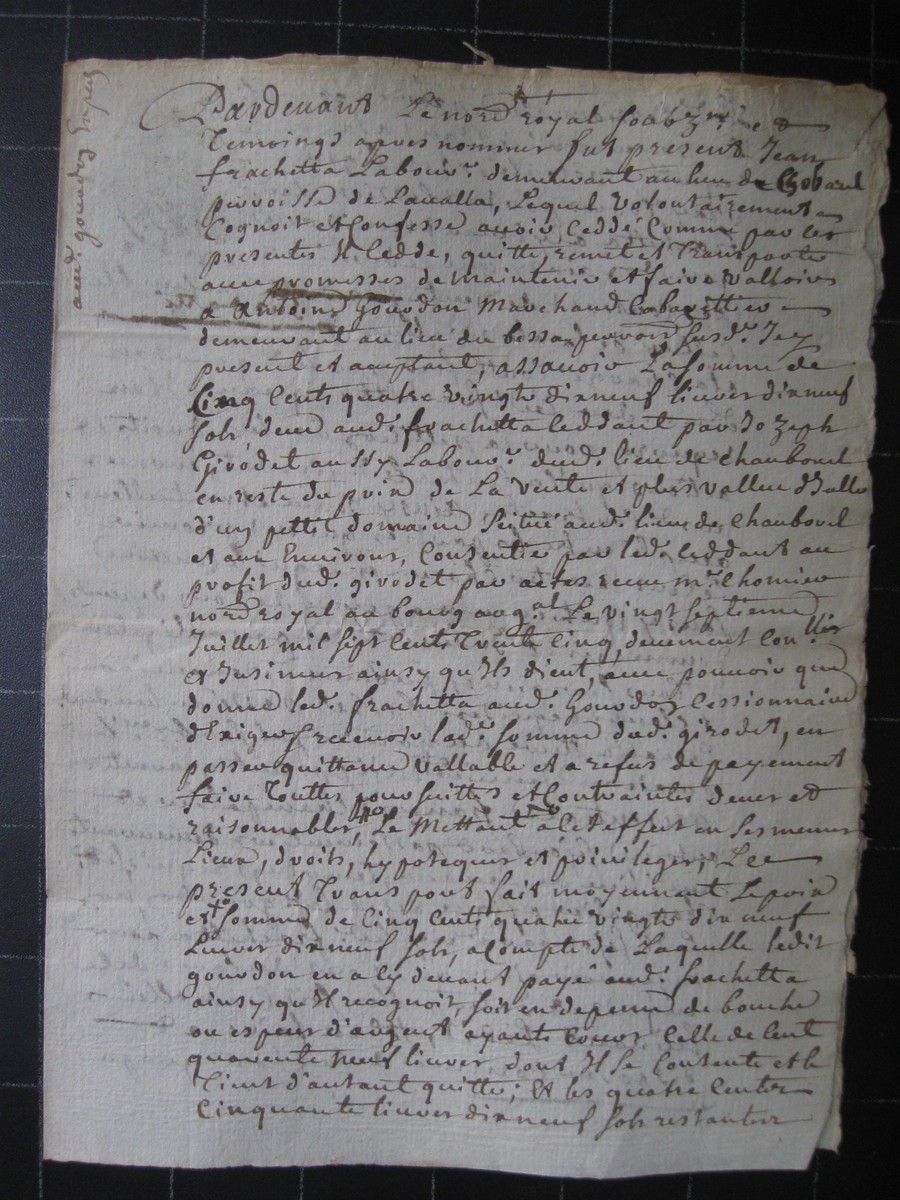 audt. gourdon
Pardevant Le nord royal soubzné et
Temoings apres nommer fut present Jean
frachetta Labour. demeurant au lieu de
parroisse de Lavalla, Lequel volontairement
Cognoit et Confesse avoir Ceddé Comme par les
presentes Il Cedde, quitte, remet et Transporte
avec promesses de maintenir et faire valloir
a Antoine Gourdon Marchand Cabarettier
demeurant au lieu du bessa parroisse susd. Icy
present et acceptant, assavoir La somme de
Cinq Cents quatre vingts dixneuf livres dixneuf
sols, deue aud. frachetta Ceddant par Jozeph
Girodet aussy Labour. dud. lieu de Chaubouel
en reste du prix de La Vente et plus vallue d'Icelle
d'un petit domaine Scitué aud. lieu de Chaubouel
et aux Environs, Consentie par led. Ceddant au
profit dud. girodet par actes receu me. Chomier
nord royal au bourg arg.al Le vingt septieme
Juillet mil sept Cents Trente Cinq deuement Con.llés
et Insinuer ainsy qu'Ils dient, avec pouvoir que
donne led. frachetta aud. Gourdon Cessionnaire
d'Exiger et recevoir lad. somme dud. girodet, en
passer quittance vallable et a refus de payement
faire Touttes poursuittes et Contraintes deues et
raisonnables, Le Mettant a Cet effert en ses memes
Lieux, droits, hypoteques et privileges; Le
present Transport fait moyennant Le prix
et somme de Cinq Cents quatre vingts dix neuf
Livres dixneuf sols, a Compte de Laquelle ledit
gourdon en a Cy devant payé aud. frachetta
ainsy qu'Il recognoit, soit en depense de bouche
ou especes d'argent ayants Cours, Celle de Cent
quarente neuf livres, dont Il se Contente et le
Tient d'autant quitte; Et les quatre Cents
Cinquante livres dixneuf sols restantes